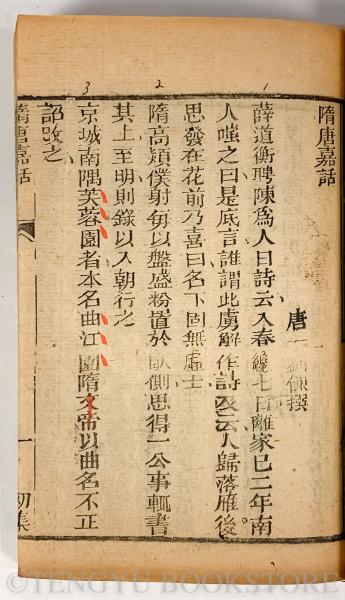 隋唐嘉話
唐 劉餗撰
1
薛道衡聘陳為人日詩云入春纔七日離家已二年南
人嗤之曰是底言誰謂此虜解作詩及云人歸落雁後
思發在花前乃喜曰名下固無虛士
2
隋高熲僕射每以盤盛粉置於臥側思得一公事輒書
其上至明則錄以入朝行之
3
京城南隅芙蓉園者本名曲江園隋文帝以曲名不正
詔改之
隋唐嘉話 一 初集
©TENGYU BOOKSTORE